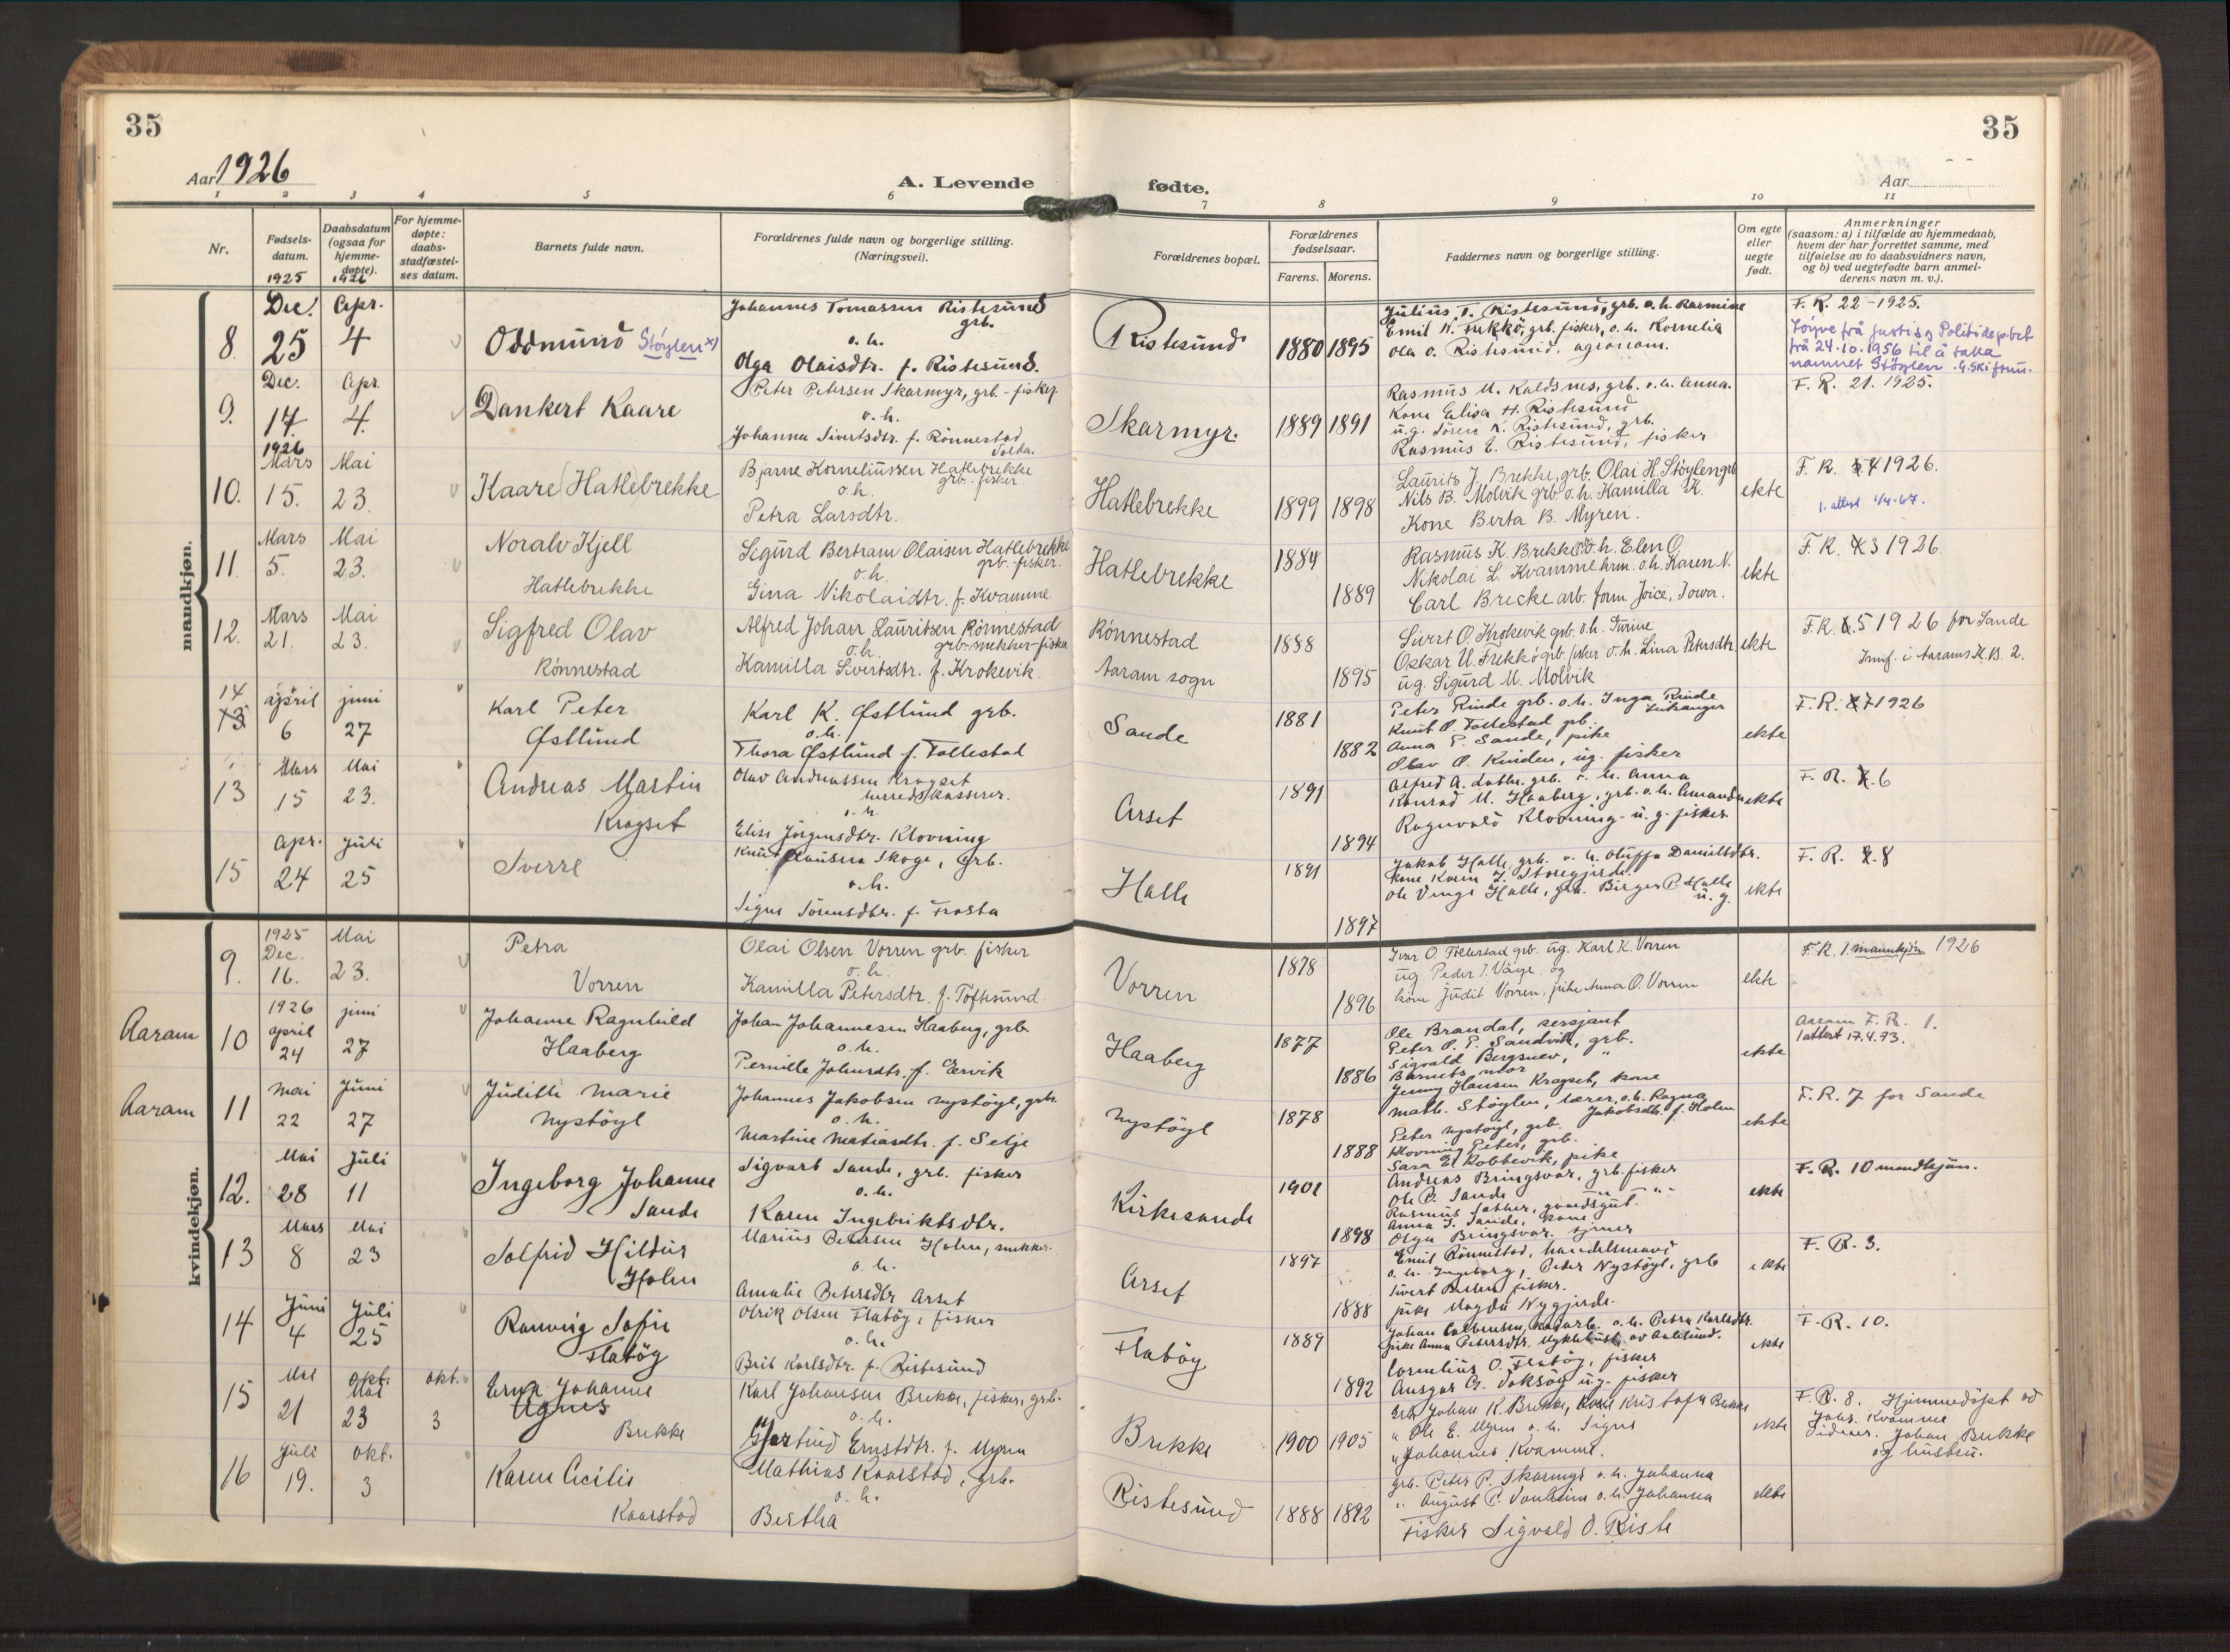 35
35
Aar 1926
A. Levende
fødte.
Aar
1
2
3
4
5
6
7
8
9
10
11
Nr.
Fødsels-
datum.
1925
Daabsdatum
(ogsaa for
hjemme-
døpte).
1926
For hjemme-
døpte:
daabs-
stadfæstel-
ses datum.
Barnets fulde navn.
Forældrenes fulde navn og borgerlige stilling.
(Næringsvei).
Forældrenes bopæl.
Forældrenes
fødselsaar.
Farens.
Morens.
Faddernes navn og borgerlige stilling.
Om egte
eller
uegte
født.
Anmerkninger
(saasom: a) i tilfælde av hjemmedaab,
hvem der har forrettet samme, med
tilføielse av to daabsvidners navn,
og b) ved uegtefødte barn anmel-
derens navn m. v.).
mandkjøn.
8
Dec.
25
Apr.
4
Oddmund Støylen x)
Johannes Tomassen Ristesund
grb.
o. h.
Olga Olaisdtr. f. Ristesund.
Ristesund
1880
1895
Julius T. Ristesund, grb. o. h. Rasmine
Emil N. Frekkö, grb. fisker, o. h. Kornelia
Ola O. Ristesund, agronom.
F. R. 22 - 1925.
Löyve frå Justis og Politidep.tet
frå 24.10.1956 til å taka
namnet Støylen.
9.
Dec.
14.
Apr.
4.
Dankert Kaare
Peter Petersen Skarmyr, grb. - fisker
o. h.
Johanna Sivertsdtr. f. Rönnestad
Skarmyr.
1889
1891
Rasmus M. Koldsnes, grb. o. h. Anna.
Kone Elisa H. Ristesund
u.g. Sören K. Ristesund, grb.
Rasmus E. Ristesund, fisker
F. R. 21. 1925.
10.
1926
Mars
15.
Mai
23.
Kaare (Hatlebrekke)
Bjarne Korneliussen Hatlebrekke
grb. - fisker
o. h.
Petra Larsdtr.
Hatlebrekke
1899
1898
Laurits J. Brekke, grb. Olai H. Støylen grb
Nils B. Molvik grb o. h. Kamilla K.
Kone Berta B. Myren.
ekte
F. R. 4 1926.
1. attest 1/4-67.
11.
Mars
5.
Mai
23.
Noralv Kjell
Hatlebrekke
Sigurd Bertram Olaisen Hatlebrekke
grb. fisker.
o. h.
Gina Nikolaidtr. f. Kvamme
Hatlebrekke
1884
1889
Rasmus K. Brekke o. h. Elen O.
Nikolai L. Kvamme hrm. o. h. Karen N.
Carl Brecke arb. form Joice, Iowa.
ekte
F. R. 3 1926.
12.
Mars
21.
Mai
23.
Sigfred Olav
Rönnestad
Alfred Johan Lauritsen Rönnestad
grb - snekker - fiske
o. h.
Kamilla Sivertsdtr. f. Krokevik.
Rönnestad
Aaram sogn
1888
1895
Sivert O. Krokevik grb. o. h. Gurine
Oskar U. Frekkö grb. fisker o. h. Lina Petersdtr.
ug. Sigurd M. Molvik
ekte
F. R. 5 1926 for Sande
Innf. i Aarams K.B. 2.
14
13
april
6
juni
27
Karl Peter
Østlund
Karl K. Østlund grb.
o. h.
Thora Østlund f. Tollestad
Sande
1881
1882
Peter Rinde grb. o. h. Inga Rinde
Leikanger
Knut O. Tollestad grb.
Anna P. Sande, pike
Olav O. Kinden, ug. fisker
ekte
F. R. 7 1926
13
Mars
15
Mai
23.
Andreas Martin
Kragset
Olav Andreassen Kragset
herredskasserer.
o. h.
Elise Jörgensdtr. Klovning
Arset
1891
1894
Alfred A. grb. o. h. Anna
Konrad M. Haaberg, grb. o. h. Amanda
Ragnvald Klovning - u. g. fisker
ekte
F. R. 6
15
Apr.
24
Juli
25
Sverre
Knut Skoge, Grb.
o. h.
Signe Sörensdtr. f. Frosta
Halle
1891
1897
Jakob Halle, grb. o. h. Oluffa Danielsdtr.
Kone Karen J. Storegjerde.
Ole Vinge Halle, grb. Birger P. Halle
u. g.
ekte
F. R. 8
kvindekjøn.
9.
1925
Dec.
16.
Mai
23.
Petra
Vorren
Olai Olsen Vorren grb. fisker
o. h.
Kamilla Petersdtr. f. Toftesund.
Vorren
1878
1896
Ivar O. Follestad grb. ug. Karl K. Vorren
ug Peder J. Våge og
kone Judit Vorren, pike Anna O. Vorren
ekte
F. R. 1. mannkjön 1926
Aaram
10
1926
april
24
juni
27
Johanne Ragnhild
Haaberg
Johan Johannesen Haaberg, grb.
o. h.
Pernille Johnsdtr. f. Ervik
Haaberg
1877
1886
Ole Brandal, sersjant
Peter O. P. Sandvik, grb.
Sigvald Bergsnev, "
Barnets mor
Jenny Hansen Kragset, kone
ekte
Aaram F. R. 1.
1 attest 17.4.73.
Aaram
11
Mai
22
Juni
27
Judith Marie
Nystöyl
Johannes Jakobsen Nystöyl, grb.
o. h.
Martine Matiasdtr. f. Selje
Nystöyl
1878
1888
Math. Støylen, lærer, o. h. Ragna
Jakobsdtr. f. Holen
Peter Nystöyl, grb.
Klovning Peter, grb.
Sara E. Kobbevik, pike
ekte
F. R. 7 for Sande
12.
Mai
28
Juli
11
Ingeborg Johanne
Sande
Sigvart Sande, grb. fisker
o. h.
Karen Ingebriktsdtr.
Kirkesande
1901
1898
Andreas Bringsvor, grb. fisker
Ole P. Sande " - " -
Rasmus Sæther, gaardsgut.
Anna J. Sande, kone
Olga Bringsvor, tjener
ekte
F. R. 10 mandkjön.
13
Mars
8
Mai
23
Solfrid Hildur
Holen
Marius Petersen Holen, snekker.
o. h.
Amalie Petersdtr Arset
Arset
1897
1888
Emil Rönnestad, handelsmand
o. h. Ingeborg, Peder Nystöyl, grb
Sivert fisker.
pike Magda Nygjerde.
ekte
F. R. 3.
14
Juni
4
Juli
25
Ranveig Sofie
Flatöy
Olrik Olsen Flatöy, fisker
o. h.
Brit Karlsdtr. f. Ristesund
Flatöy
1889
1892
Johan o. h. Petra Karlsdtr.
pike Anna Petersdtr. Myklebust av Aalesund.
Cornelius O. Flatöy, fisker
Ansgar G. Voksöy u. g. fisker
ekte
F. R. 10.
15
Mai
21
okt.
Mai
23
okt.
3
Erna Johanne
Agnes
Brekke
Karl Johansen Brekke, fisker, grb.
o. h.
Gjertrud Ernstdtr. f. Myren
Brekke
1900
1905
Grb Johan K. Brekke, Kone Kristofa Brekke
" Ole E. Myren o. h. Signe
" Johannes Kvamme.
ekte
F. R. 8. Hjemmedöpt av
Johs. Kvamme
Vidner. Johan Brekke
og hustru.
16
Juli
19.
okt.
3
Karen Cecilie
Kaarstad
Mathias Kaarstad, grb.
o. h.
Bertha
Ristesund
1888
1892
grb. Peter P. Skarmyr o. h. Johanna
" August P. Vonheim o. h. Johanna
Fisker Sigvald O. Riste
ekte